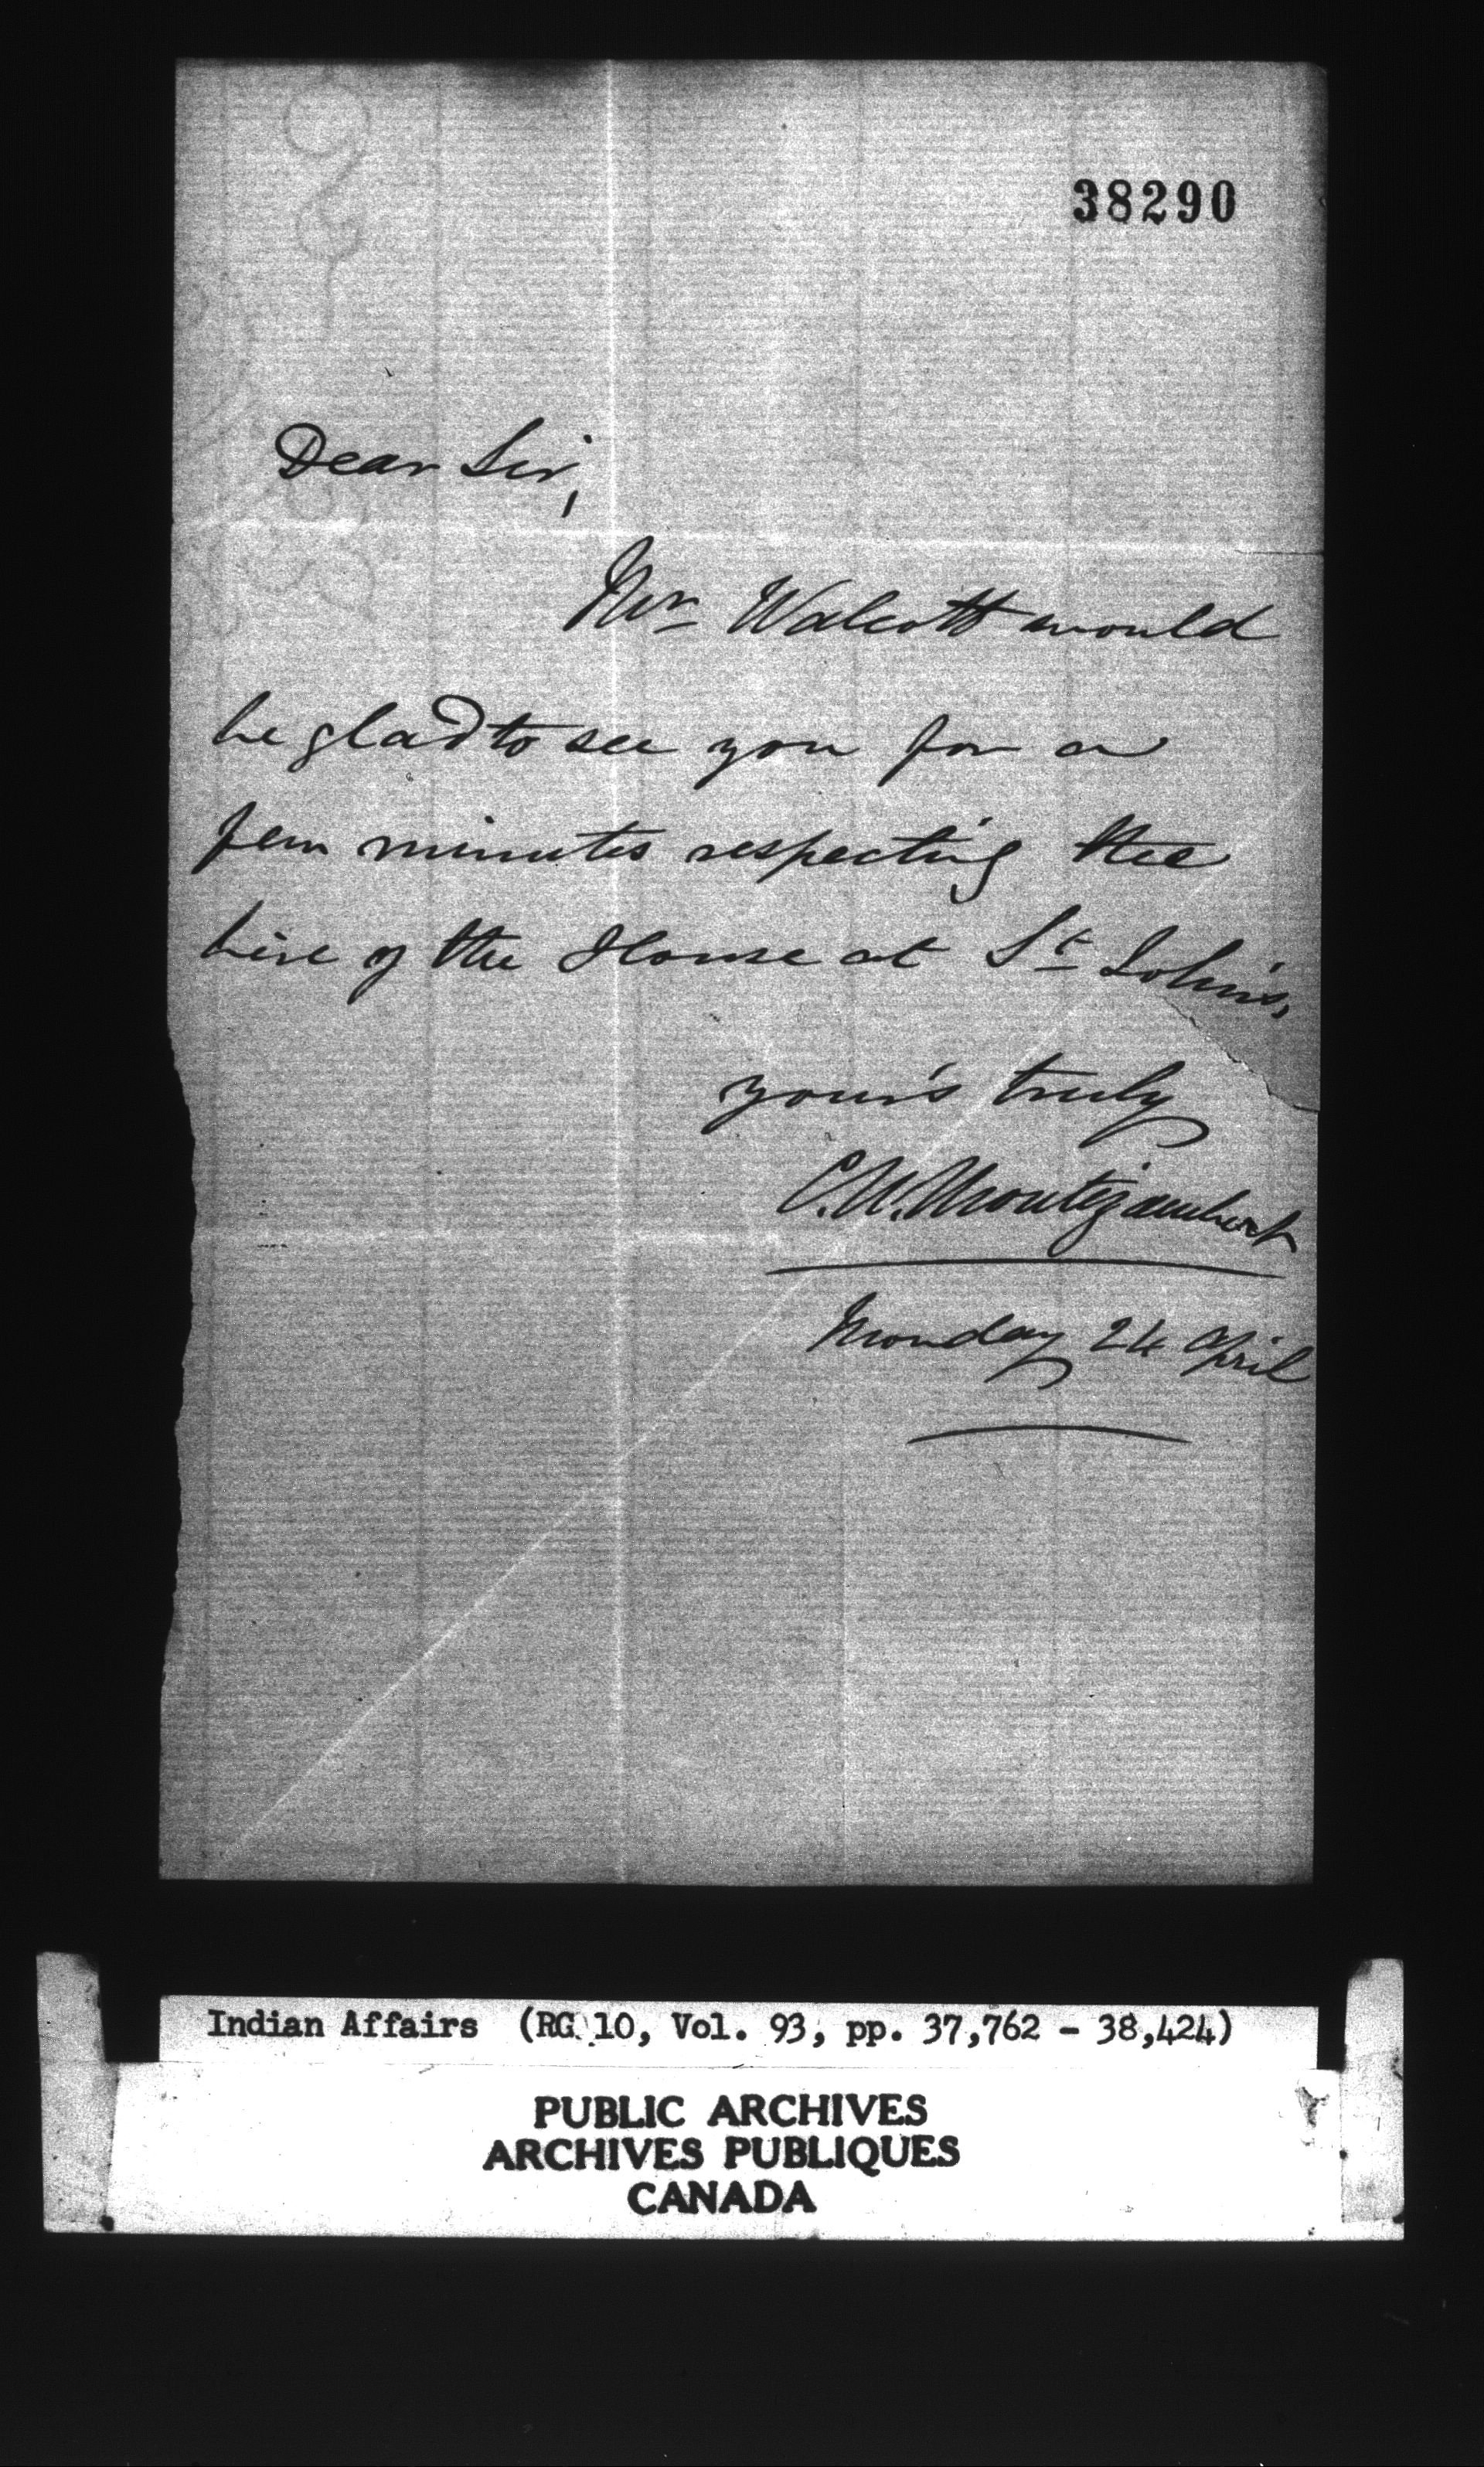 38290
Dear Sir,
Mr Walcott would
be glad to see you for a
few minutes respecting the
hire of the House at St John's,
your's truly
C.N. Montizambert
Monday 24 April
Indian Affairs (RG 10, Vol. 93, pp. 37,762 - 38,424)
PUBLIC ARCHIVES
ARCHIVES PUBLIQUES
CANADA